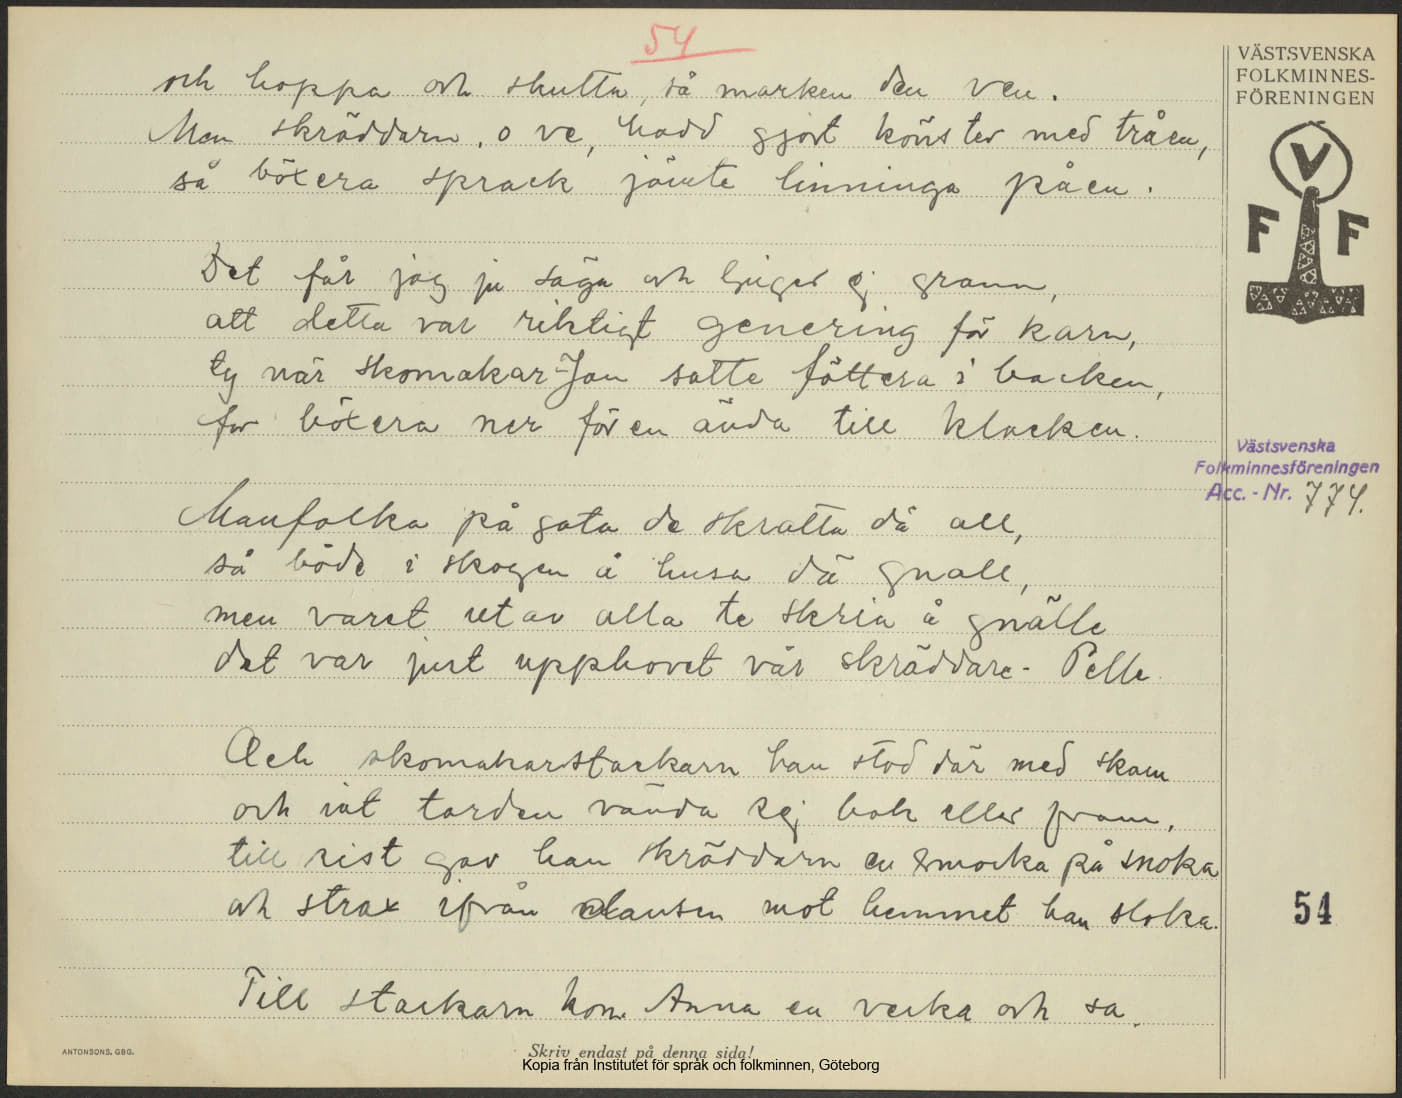 54
och hoppa och skutta, så marken den ven.
Men skräddarn, o ve, hadd gjort könster med tråen,
så böxera sprack jämte linninga påen.
Det får jag ju säga och ljuger ej grann,
att detta var riktigt genering för karn,
ty när skomakar-Jan satte föttera i backen,
for böxera ner för en ända till klacken.
Manfolka på gata de skratta då all,
så både i skogen å husa dä gnall,
men varst utav alla te skria å gnälle
det var just upphovet vår skräddare-Pelle.
Och skomakarstackarn han stod där med skam
och int torden vända sej bak eller fram,
till sist gav han skräddarn en smocka på snoka
och strax ifrån dansen mot hemmet han sloka.
Till stackarn kom Anna en vecka och sa,
VÄSTSVENSKA
FOLKMINNES-
FÖRENINGEN
V
F F
Västsvenska
Folkminnesföreningen
Acc.-Nr. 774.
54
ANTONSONS, GBG.
Skriv endast på denna sida!
Kopia från Institutet för språk och folkminnen, Göteborg